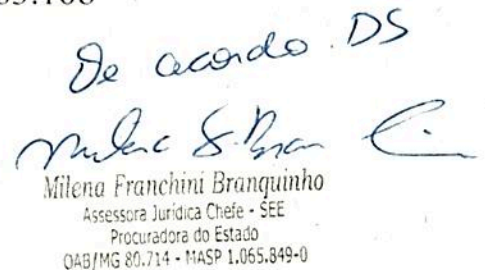 De acordo. DS
Milena Franchini Branquinho
Assessora Jurídica Chefe - SEE
Procuradora do Estado
OAB/MG 80.714 - MASP 1.065.849-0